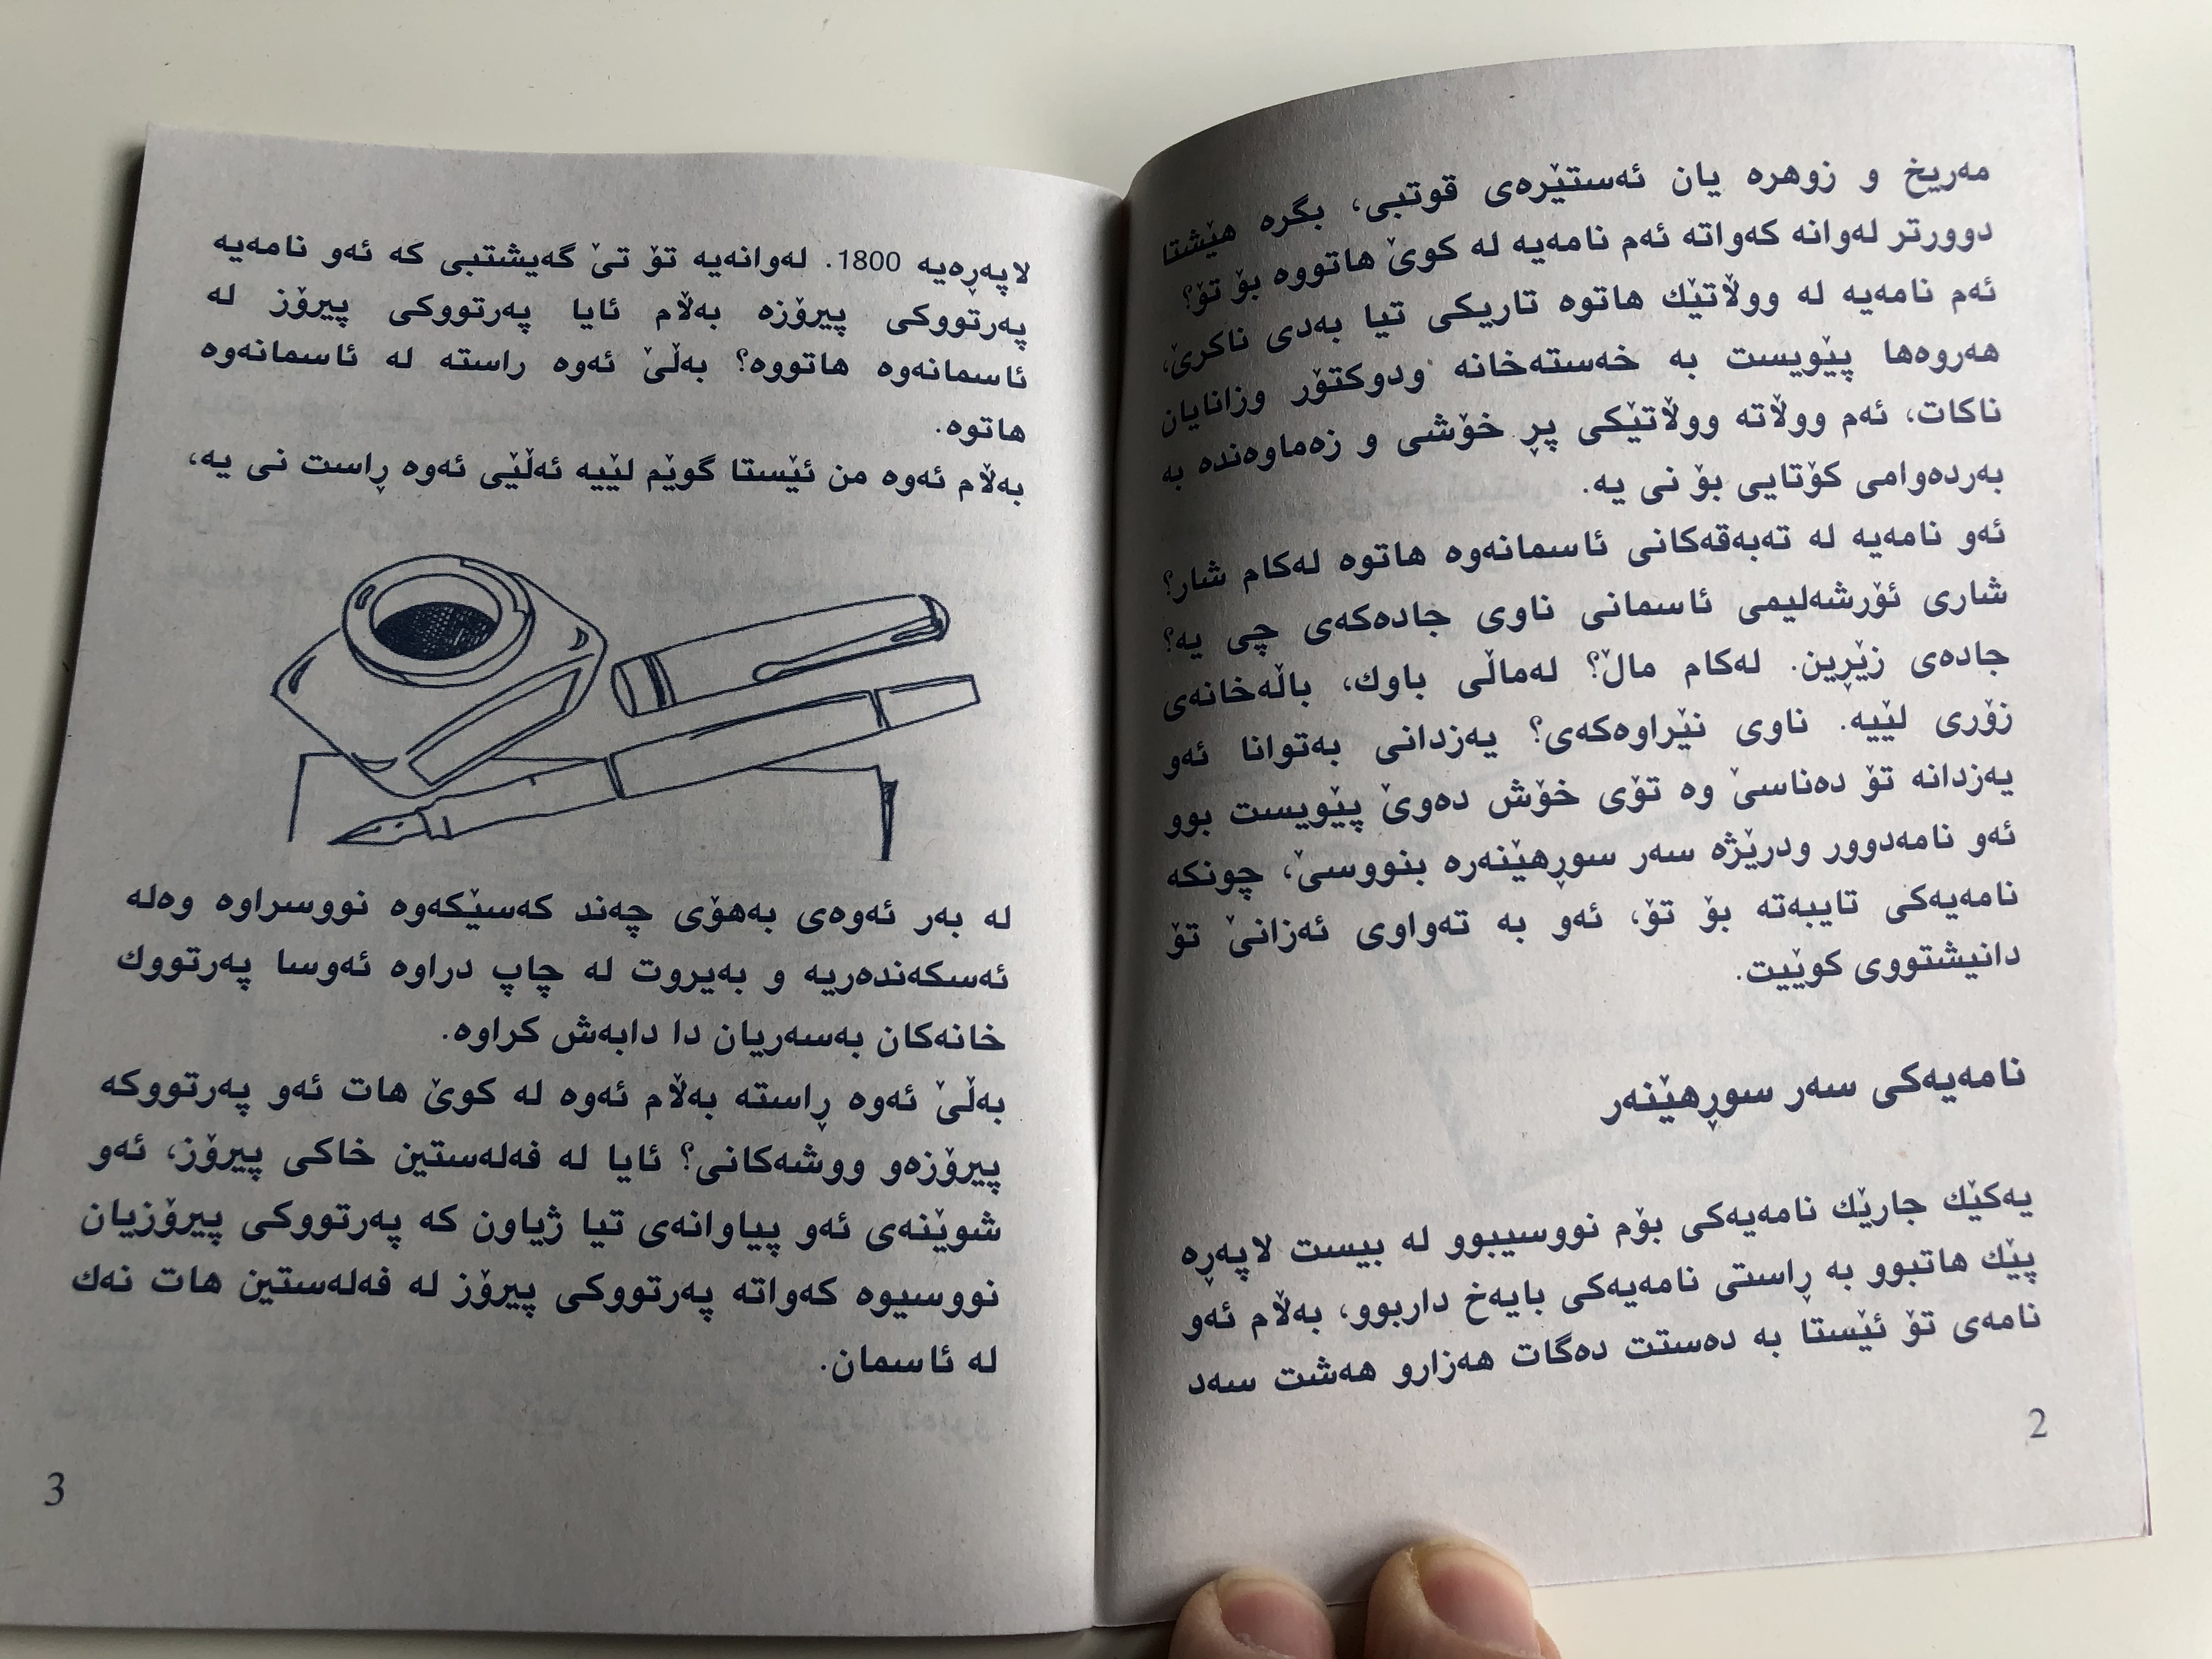 مەریخ و زوهرە یان ئەستێرەی قوتبی، بگرە هێشتا
دوورتر لەوانە کەواتە ئەم نامەیە لە کوێ هاتووە بۆ تۆ؟
ئەم نامەیە لە ووڵاتێك هاتوە تاریکی تیا بەدی ناکرێ،
هەروەها پێویست بە خەستەخانە ودوکتۆر وزانایان
ناکات، ئەم ووڵاتە ووڵاتێکی پڕ خۆشی و زەماوەندە بە
بەردەوامی کۆتایی بۆ نی یە.
ئەو نامەیە لە تەبەقەکانی ئاسمانەوە هاتوە لەکام شار؟
شاری ئۆرشەلیمی ئاسمانی ناوی جادەکەی چی یە؟
جادەی زێڕین. لەکام ماڵ؟ لەماڵی باوك، باڵەخانەی
زۆری لێیە. ناوی نێراوەکەی؟ یەزدانی بەتوانا ئەو
یەزدانە تۆ دەناسێ وە تۆی خۆش دەوێ پێویست بوو
ئەو نامەدوور ودرێژە سەر سوڕهێنەرە بنووسێ، چونکە
نامەیەکی تایبەتە بۆ تۆ، ئەو بە تەواوی ئەزانێ تۆ
دانیشتووی کوێیت.
نامەیەکی سەر سوڕهێنەر
یەکێك جارێك نامەیەکی بۆم نووسیبوو لە بیست لاپەڕە
پێك هاتبوو بە ڕاستی نامەیەکی بایەخ داربوو، بەڵام ئەو
نامەی تۆ ئێستا بە دەستت دەگات هەزارو هەشت سەد
2
لاپەڕەیە 1800. لەوانەیە تۆ تێ گەیشتبی کە ئەو نامەیە
پەرتووکی پیرۆزە بەڵام ئایا پەرتووکی پیرۆز لە
ئاسمانەوە هاتووە؟ بەڵێ ئەوە راستە لە ئاسمانەوە
هاتوە.
بەڵام ئەوە من ئێستا گوێم لێیە ئەڵێی ئەوە ڕاست نی یە،
لە بەر ئەوەی بەهۆی چەند کەسێکەوە نووسراوە وەلە
ئەسکەندەریە و بەیروت لە چاپ دراوە ئەوسا پەرتووك
خانەکان بەسەریان دا دابەش کراوە.
بەڵێ ئەوە ڕاستە بەڵام ئەوە لە کوێ هات ئەو پەرتووکە
پیرۆزەو ووشەکانی؟ ئایا لە فەلەستین خاکی پیرۆز، ئەو
شوێنەی ئەو پیاوانەی تیا ژیاون کە پەرتووکی پیرۆزیان
نووسیوە کەواتە پەرتووکی پیرۆز لە فەلەستین هات نەك
لە ئاسمان.
3